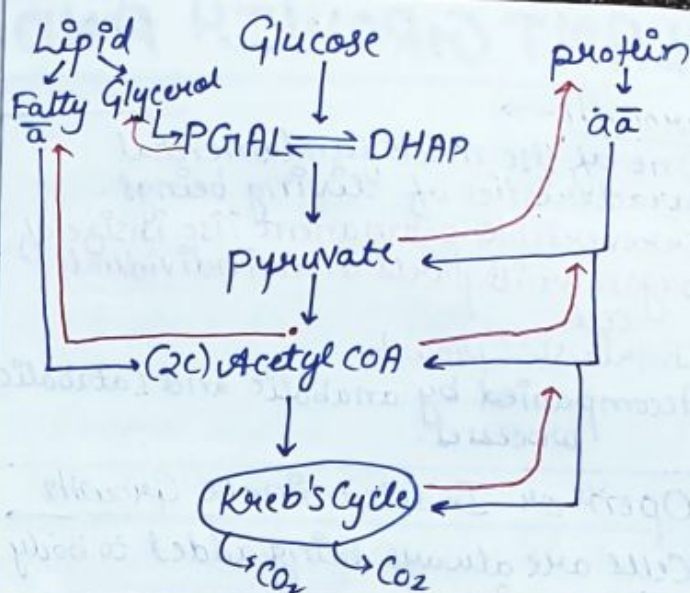 Lipid Glucose protein
Fatty Glycerol a a̅
a̅
PGAL DHAP
pyruvate
(2C) Acetyl COA
Kreb's Cycle
CO₂ CO₂